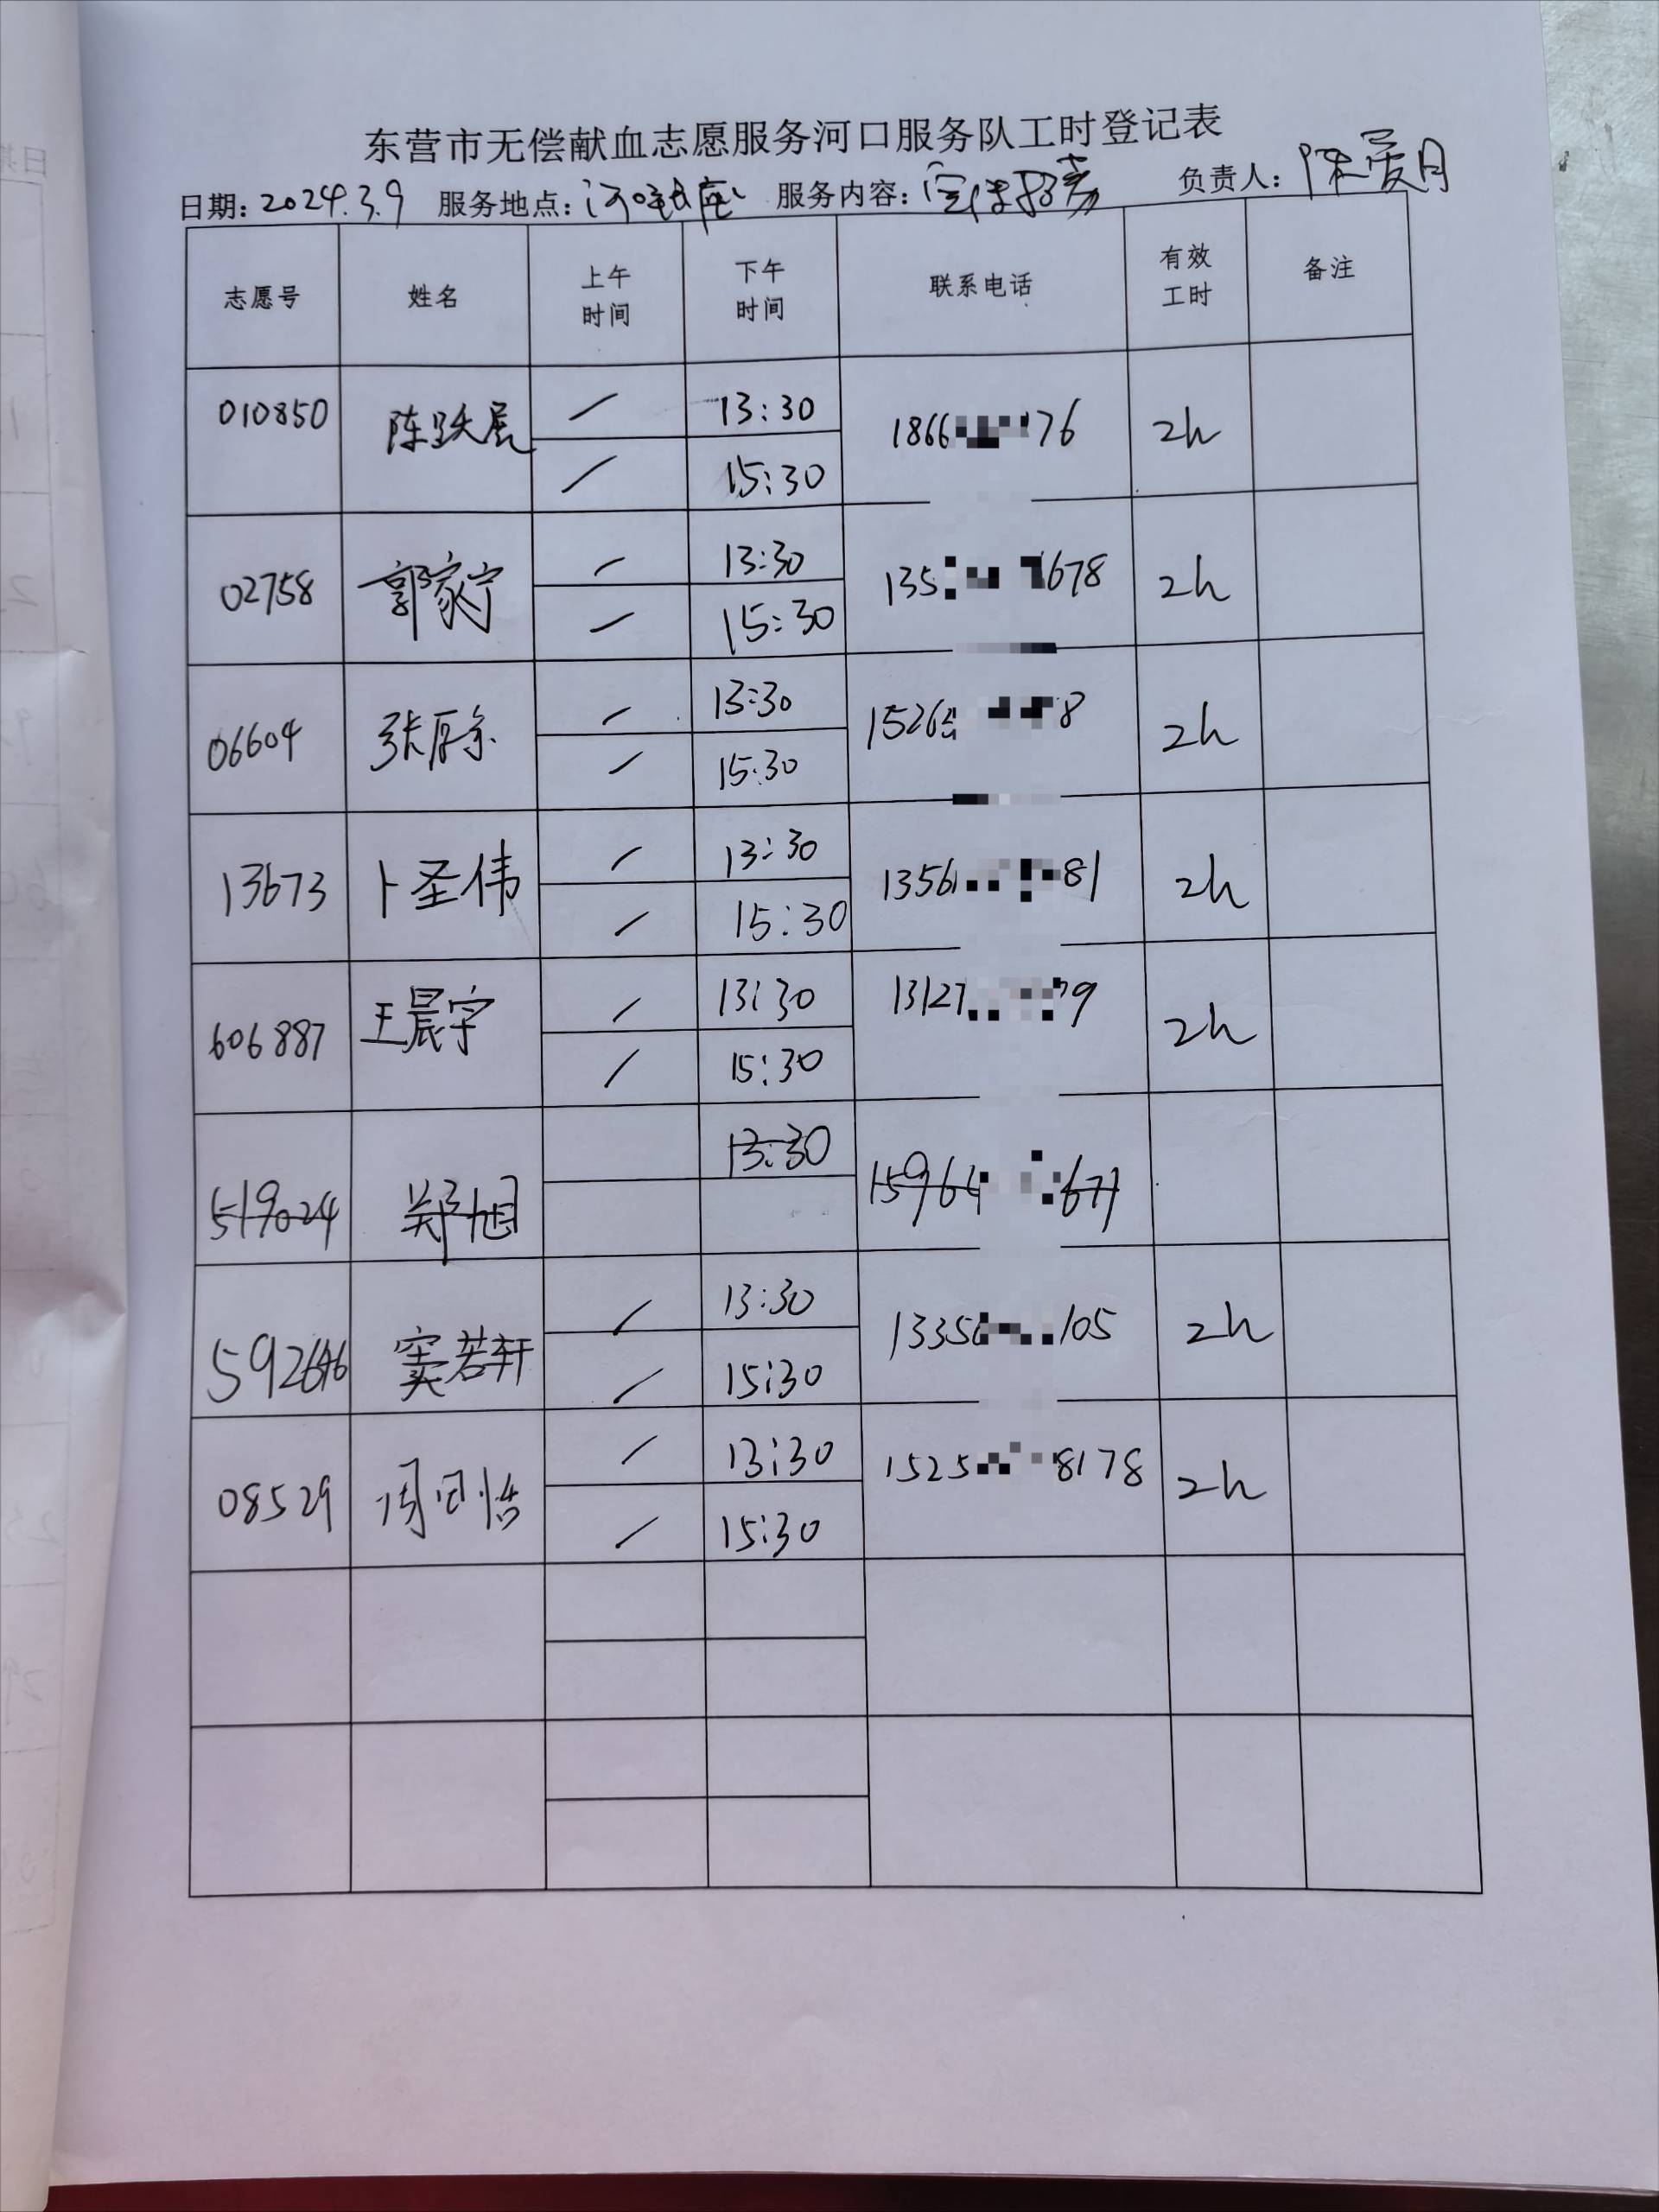 东营市无偿献血志愿服务河口服务队工时登记表
日期: 2024.3.9 服务地点: 河口 服务内容: 宣传招募 负责人: 陈爱月
志愿号 姓名 上午时间 下午时间 联系电话 有效工时 备注
010850 陈跃展 / 13:30 1866 76 2h
/ 15:30
02758 郭家宁 / 13:30 135 1678 2h
/ 15:30
06604 张 / 13:30 1526 8 2h
/ 15:30
13673 卜圣伟 / 13:30 1356 81 2h
/ 15:30
606887 王晨宇 / 13:30 13127 79 2h
/ 15:30
519024 郑旭 13:30 15964 677
窦若轩 / 13:30 1335 105 2h
/ 15:30
08529 周 / 13:30 1525 8178 2h
/ 15:30